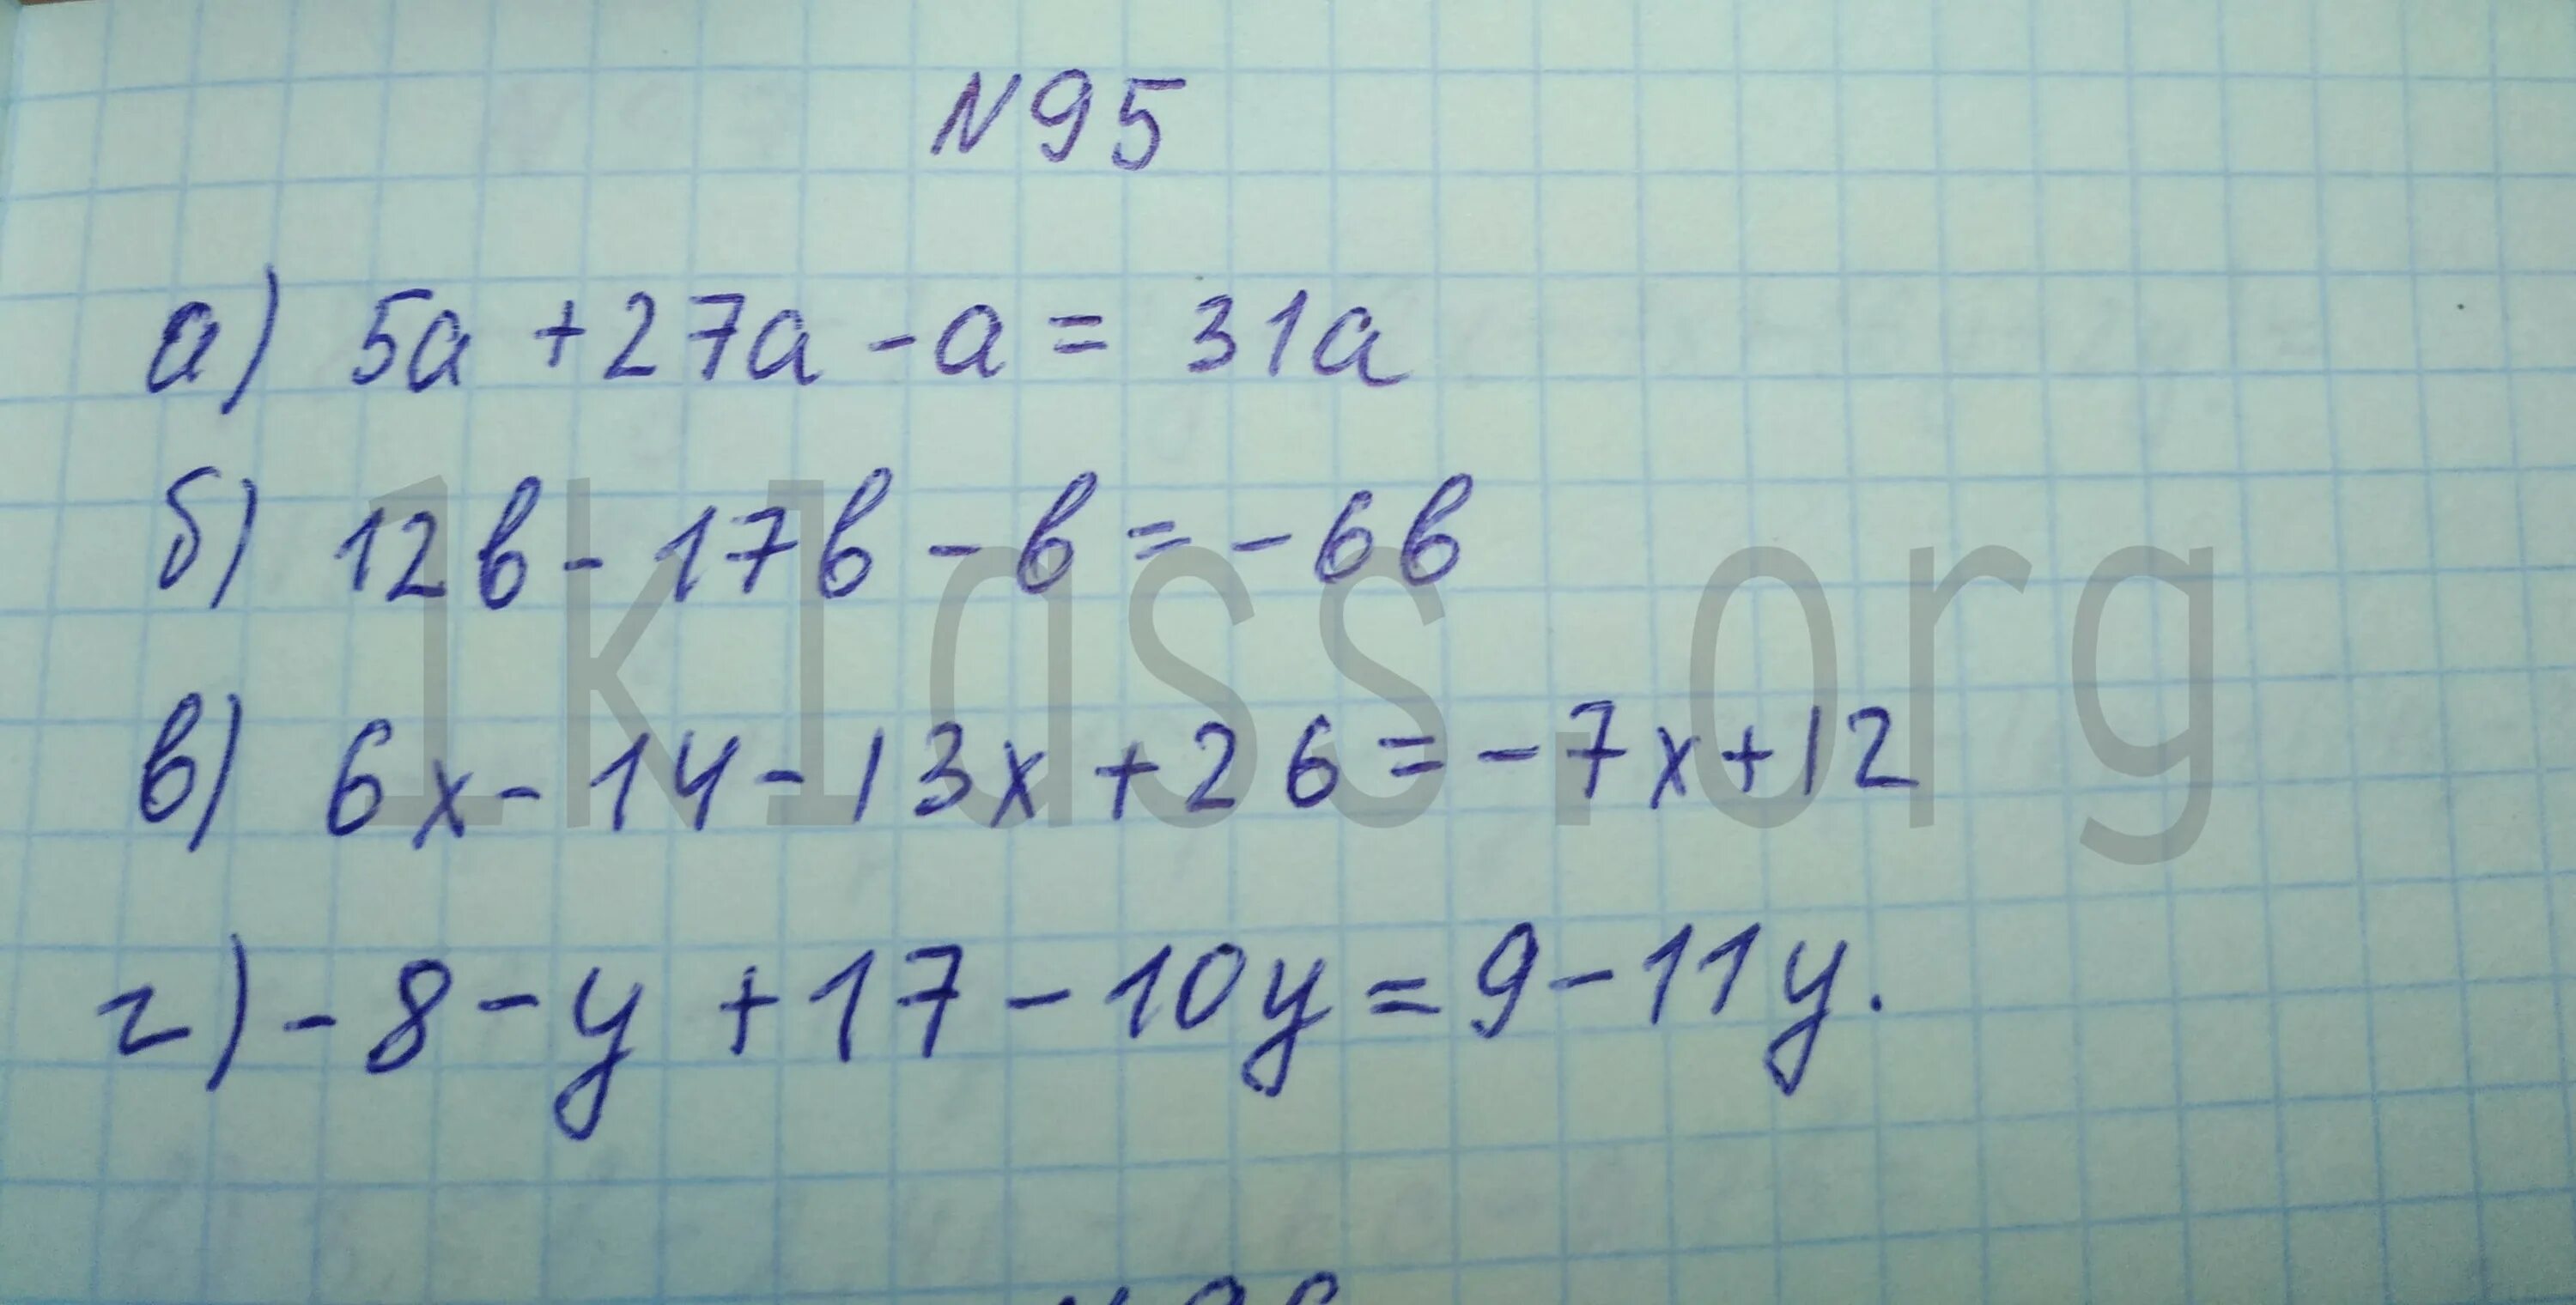 N95
а) 5a + 27a - a = 31a
б) 12b - 17b - b = - 6b
1klass.org
в) 6x - 14 - 13x + 26 = - 7x + 12
г) - 8 - y + 17 - 10y = 9 - 11y.